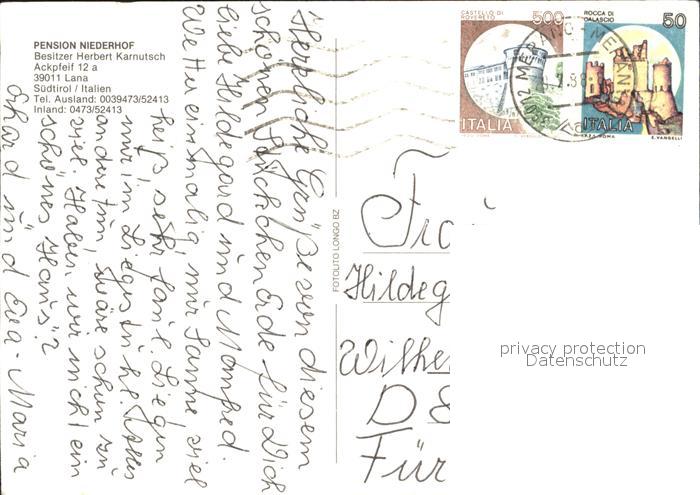 PENSION NIEDERHOF
Besitzer Herbert Karnutsch
Ackpfeif 12 a
39011 Lana
Südtirol / Italien
Tel. Ausland: 0039473/52413
Inland: 0473/52413
Herrliche Grüße von diesem
schönen Fleckchen Erde für Dich
liebe Hildegard und Manfred.
Wetter einmalig, nur Sonne, viel
heiß, sehr faul. Liegen
nur im Liegestuhl. Alles
andere im
viel. Haben wir nicht ein
schönes Haus?
und Eva-Maria
FOTOLITO LONGO BZ
CASTELLO DI
ROVERETO
500
ITALIA
ROCCA DI
CALASCIO
50
ITALIA
I.P.Z.S. ROMA
E. VANGELLI
Hildeg
Wilhe
D 8
Für
privacy protection
Datenschutz